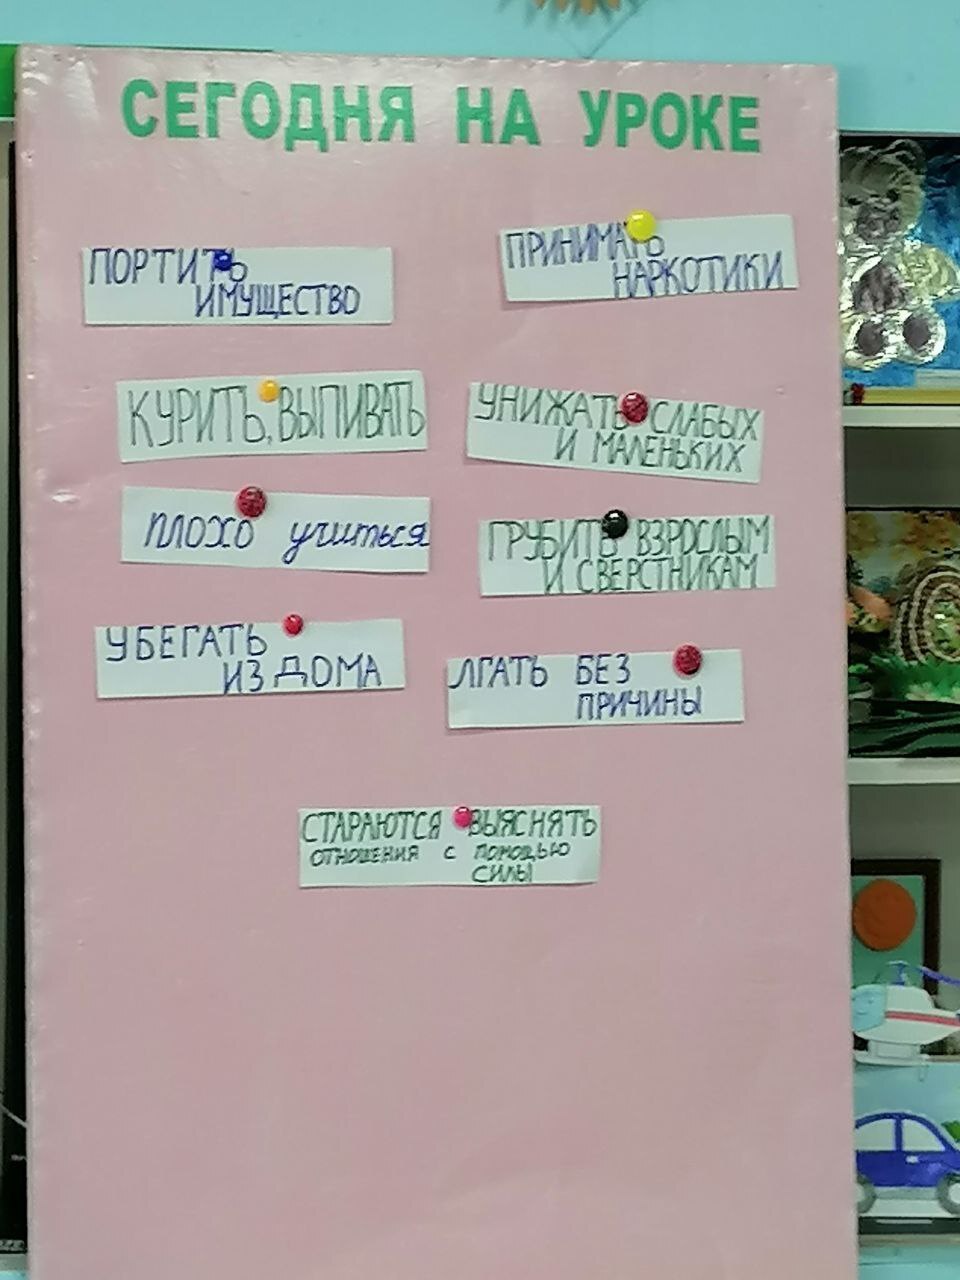 СЕГОДНЯ НА УРОКЕ
ПОРТИТЬ
ИМУЩЕСТВО
ПРИНИМАТЬ
НАРКОТИКИ
КУРИТЬ, ВЫПИВАТЬ
УНИЖАТЬ СЛАБЫХ
И МАЛЕНЬКИХ
ПЛОХО учиться
ГРУБИТЬ ВЗРОСЛЫМ
И СВЕРСТНИКАМ
УБЕГАТЬ
ИЗ ДОМА
ЛГАТЬ БЕЗ
ПРИЧИНЫ
СТАРАЮТСЯ ВЫЯСНЯТЬ
ОТНОШЕНИЯ С ПОМОЩЬЮ
СИЛЫ